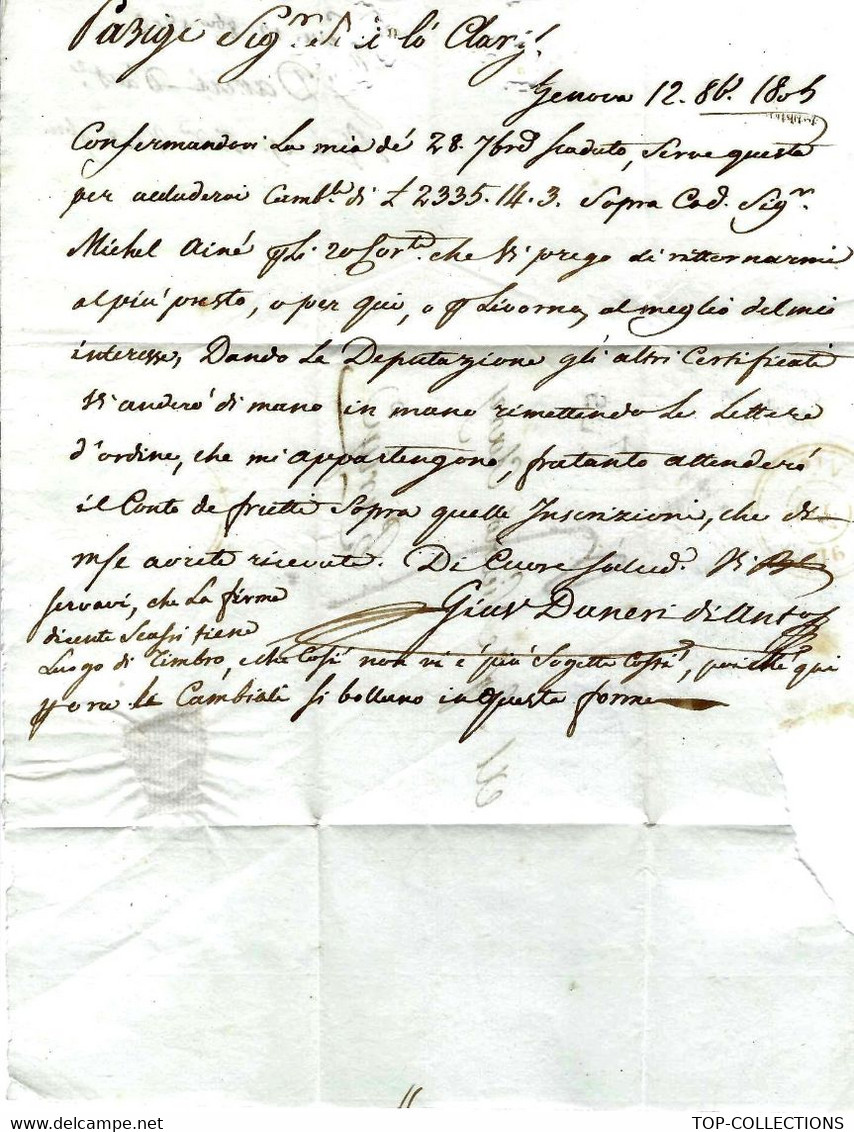 Parigi Sig.r
Genova 12. 8b.e 1805
Confermandovi La mia dé 28. 7bre scaduto, serve questa
per accludervi Camb.le di £ 2335.14.3. Sopra Cod. Sig.r
Michel Ainé p Li 20 Corr.te che Vi prego di rittornarmi
al più presto, o per qui, o p Livorno, al meglio del mio
interesse, Dando La Deputazione gli altri Certificati
Vi anderò di mano in mano rimettendo Le Lettere
d'ordine, che mi appartengono, fratanto attenderò
il Conto de frutti Sopra quelle Inscrizioni, che di
avrete ricevute. Di Cuore Salud.o Vi
servavi, che La firma
dicente Scassi tiene
Luogo di Timbro, e che Così non vi è più Sogetta Costì, poiché qui
p ora Le Cambiali si bollano in questa forma
Giac.o Daneri di Ant.o
TOP-COLLECTIONS